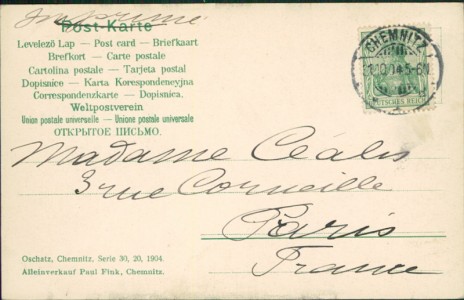 Imprimé
Post-Karte
Levelező Lap — Post card — Briefkaart
Brefkort — Carte postale
Cartolina postale — Tarjeta postal
Dopisnice — Karta Korespondencyjna
Correspondenzkarte — Dopisnica.
Weltpostverein
Union postale universelle — Unione postale universale
ОТКРЫТОЕ ПИСЬМО.
CHEMNITZ
DEUTSCHES REICH
Madame Céalis
3 rue Corneille
Paris
France
Oschatz, Chemnitz, Serie 30, 20, 1904.
Alleinverkauf Paul Fink, Chemnitz.